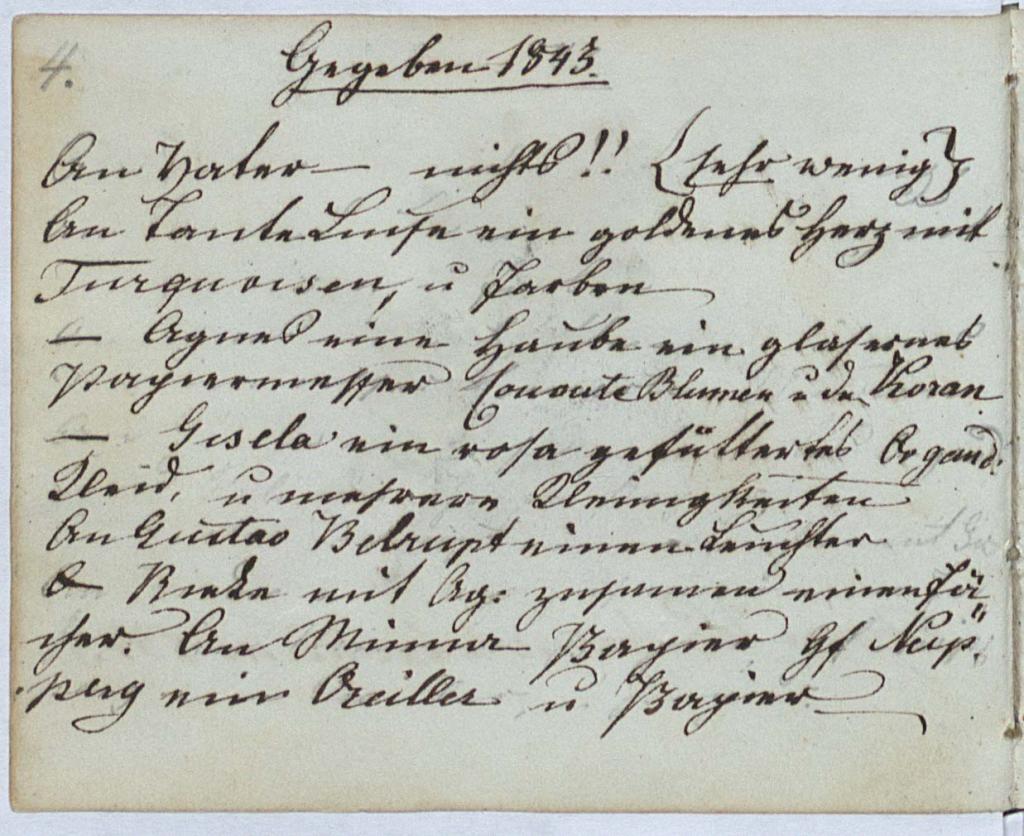 4.
Gegeben 1843.
An Vater — nichts!! {sehr wenig}
An Tante Luise ein goldenes Herz mit
Turquoisen, u Farben
— Agnes eine Haube ein glasernes
Papiermesser Blumen u den Koran
— Gisela ein rosa gefüttertes Organd:
Kleid, u mehrere Kleinigkeiten
An Gustav Belrupt einen Leuchter
mit Ag: zusamen einen Fä
cher. An Minna Papier Gf Neip„
perg ein Oreiller u Papier